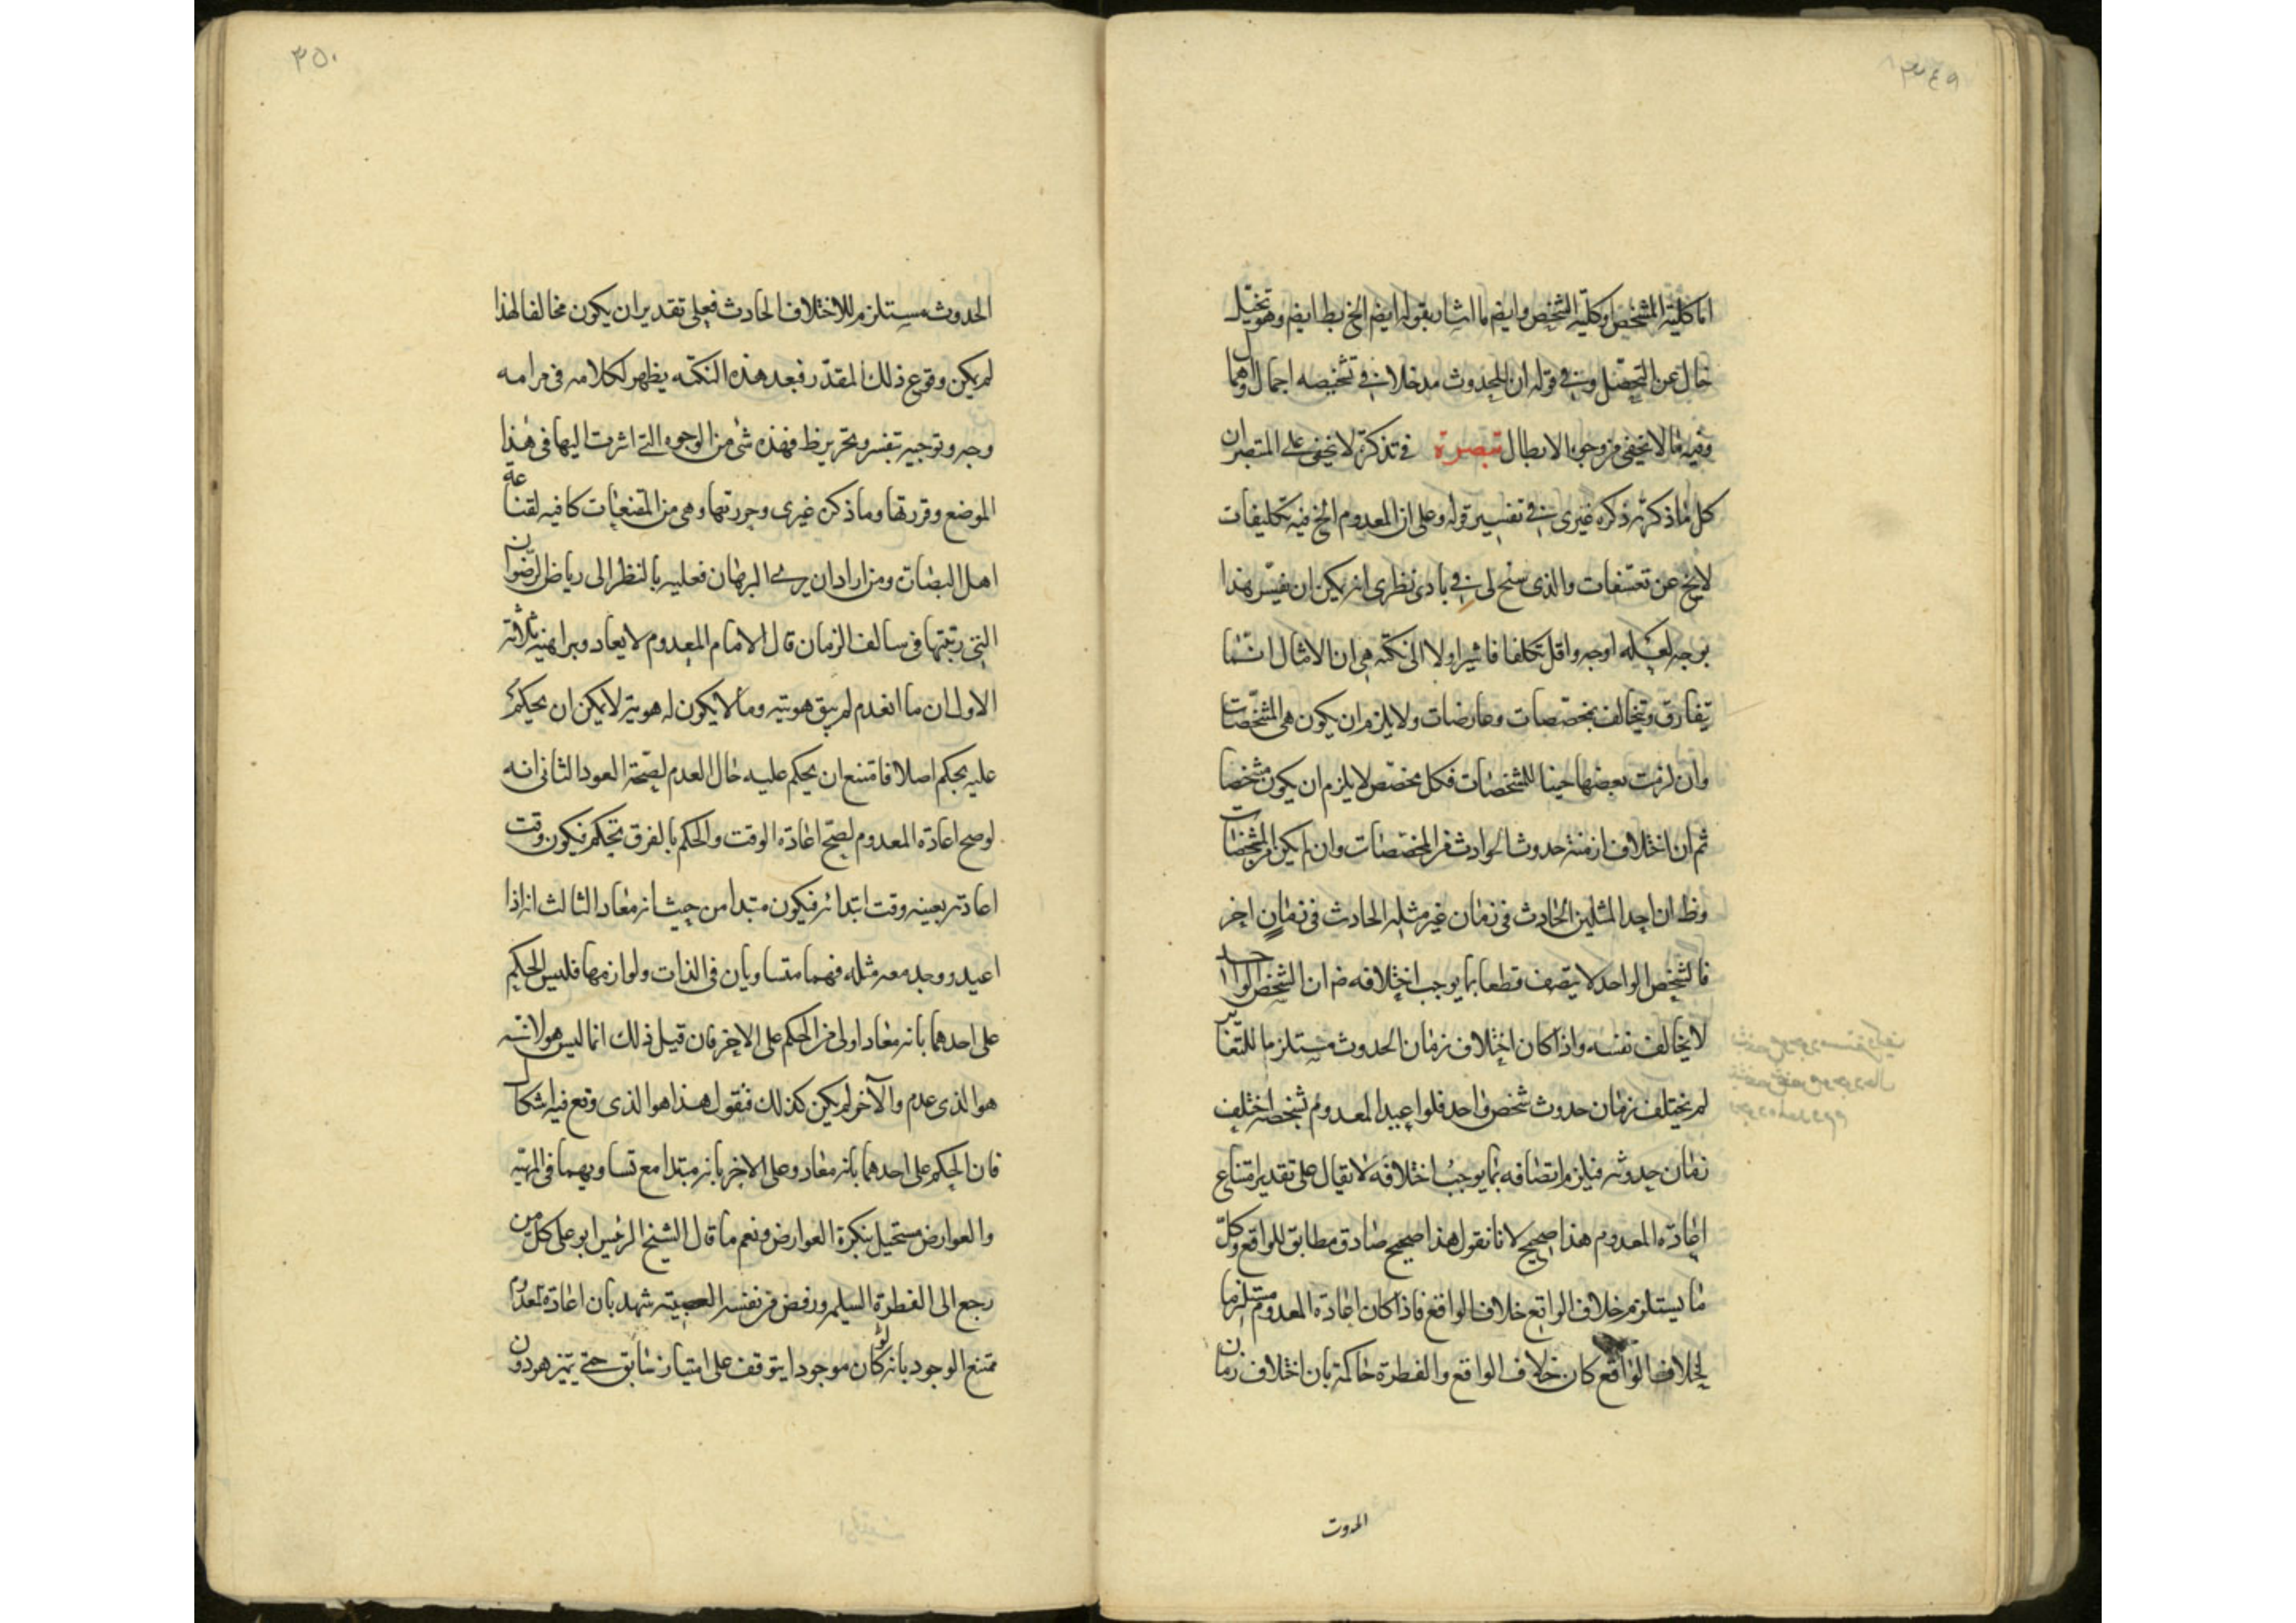 ٣٤٩
اما كلية المشخص او كلية التشخص وايضم ما اشار بقوله ايضم الخ بط ايضم وهو تخيل
خال عن التحصيل وفي قوله ان للحدوث مدخلا في تشخيصه اجمال واهمال
وفيه ما لا يخفى من وجوه الابطال تبصرة في تذكرة لا يخفى على المتبصر ان
كل ما ذكرته وذكره غيرى في تفسير قوله وعلى ان المعدوم الخ فيه تكليفات
لا يخ عن تعسفات والذى سنح لى في بادى نظرى انه يمكن ان يفسر هذا
بوجه لعله اوجه واقل تكلفا فاشير اولا الى نكتة هى ان الامثال انما
يتفارق ويتخالف بمخصصات وعارضات ولا يلزم ان يكون هى المشخصات
وان لزمت بعضها حينا للمشخصات فكل مخصص لا يلزم ان يكون مشخصا
ثم ان اختلاف ازمنة حدوث الحوادث من المخصصات وان لم يكن من المشخصات
وظ ان احد المثلين الحادث فى زمان غير مثله الحادث فى زمان اخر
فالشخص الواحد لا يتصف قطعا بما يوجب اختلافه ضم ان الشخص الواحد
لا يخالف نفسه واذا كان اختلاف زمان الحدوث مستلزما للتغاير
لم يختلف زمان حدوث شخص واحد فلو اعيد المعدوم بشخصه اختلف
زمان حدوثه فيلزم اتصافه بما يوجب اختلافه لا يقال على تقدير امتناع
اعادة المعدوم هذا صحيح لانا نقول هذا صحيح صادق مطابق للواقع وكل
ما يستلزم خلاف الواقع خلاف الواقع فاذا كان اعادة المعدوم مستلزما
لخلاف الواقع كان خلاف الواقع والفطرة حاكمة بان اختلاف زمان
الحدوث
٣٥٠
الحدوث مستلزم للاختلاف الحادث فعلى تقدير ان يكون مخالفا لهذا
لم يكن وقوع ذلك المقدر فبعد هذه النكته يظهر لكلامه فى مرامه
وجه وتوجيه بتفسير وتحرير ظ فهذه شئ من الوجوه التے اشرت اليها فى هذا
الموضع وقررتها وما ذكره غيرى وحررتها وهى من المقنعيات كافيه لقناعة
اهل البصات ومن اراد ان يرے البرهان فعليه بالنظر الى رياض الرضوان
التى رتبتها فى سالف الزمان قال الامام المعدوم لا يعاد وبراهينه ثلاثة
الاول ان ما انعدم لم يبق هويته وما لا يكون له هوية لا يمكن ان يحكم
عليه بحكم اصلا فامتنع ان يحكم عليه حال العدم لصحة العود الثانى انه
لو صح اعادة المعدوم لصح اعادة الوقت والحكم بالفرق تحكم فيكون وقت
اعادته بعينه وقت ابتدائه فيكون مبتدا من حيث انه معاد الثالث انه اذا
اعيد ووجد معه مثله فهما متساويان فى الذات ولوازمها فليس الحكم
على احدهما بانه معاد اولى من الحكم على الاخر فان قيل ذلك انما ليس هو لانه
هو الذى عدم والآخر لم يكن كذلك فنقول هذا هو الذى وقع فيه اشكال
فان الحكم على احدهما بانه معاد وعلى الاخر بانه مبتدا مع تساويهما فى المهية
والعوارض مستحيل بنكرة العوارض ونعم ما قال الشيخ الرئيس ابو على كل من
رجع الى الفطرة السليمه ورفض من نفسه العصبية شهد بان اعادة المعدوم
ممتنع الوجود بانه لو كان موجودا يتوقف على امتياز سابق حتے يتميز هو دون